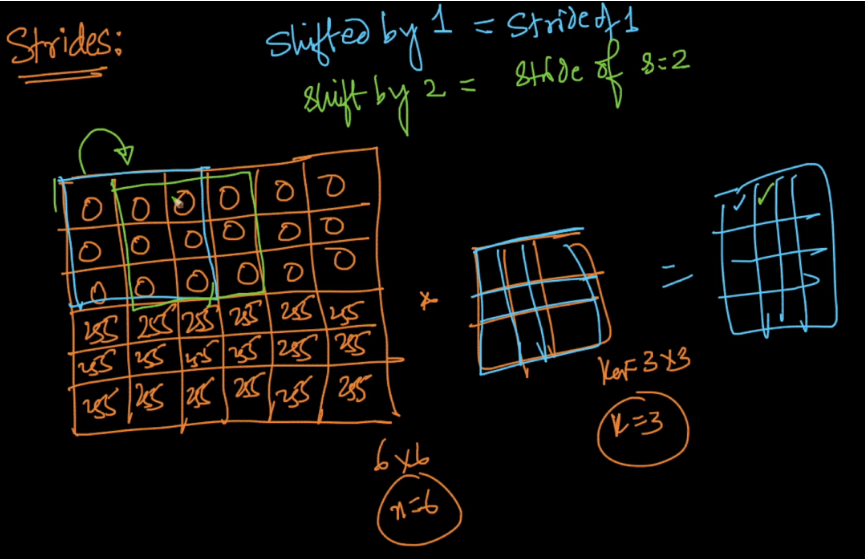 Strides:
Shifted by 1 = Stride of 1
shift by 2 = stride of s=2
0 0 0 0 0 0
0 0 0 0 0 0
0 0 0 0 0 0
255 255 255 255 255 255
255 255 255 255 255 255
255 255 255 255 255 255
* =
Ker= 3x3
k=3
6x6
n=6